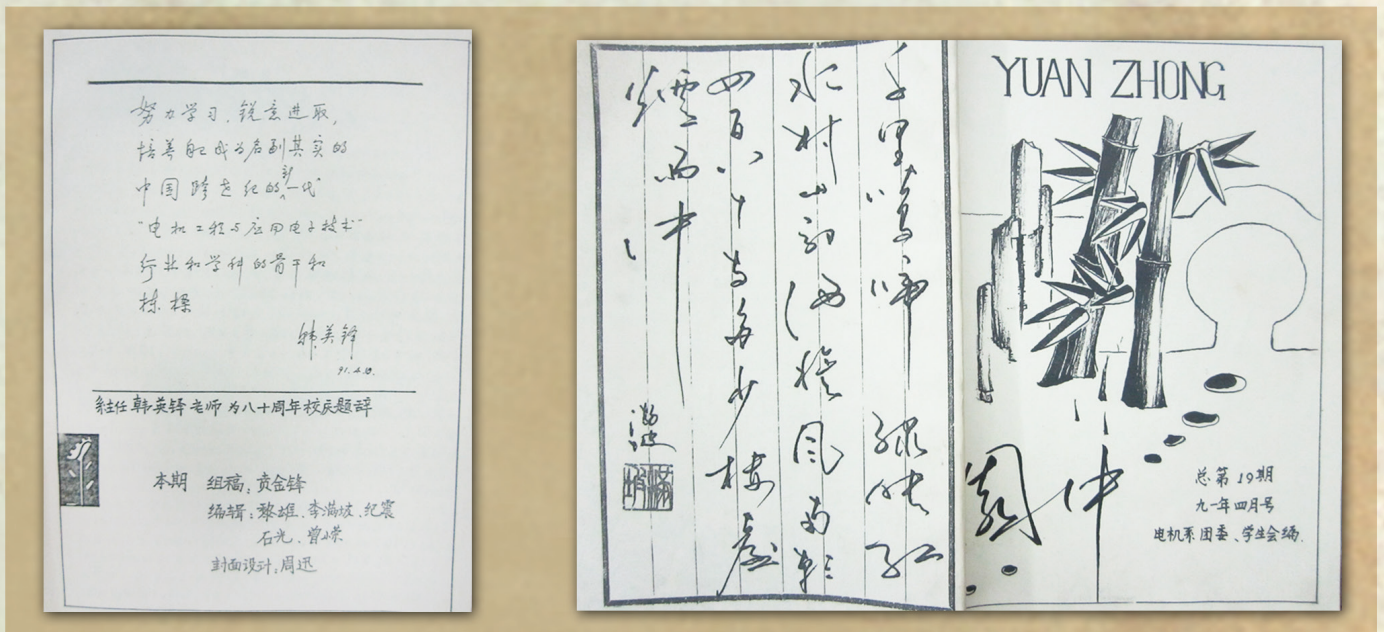 努力学习、锐意进取,
培养自己成为名副其实的
中国跨世纪的新一代
"电机工程与应用电子技术"
行业和学科的骨干和
栋樑
韩英铎
系主任韩英铎老师为八十周年校庆题辞
本期 组稿:贡金锋
编辑:黎雄、李满坡、纪震
石光、曾嵘
封面设计:周迅
千里莺啼绿映红
水村山郭酒旗风南朝
四百八十寺多少楼台
煙雨中
满坡
YUAN ZHONG
園中
总第19期
九一年四月号
电机系团委、学生会编.